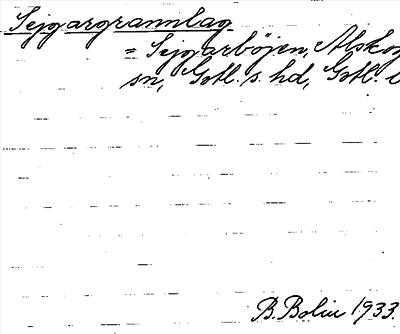 Sejgargrannlag
= Sejgarbøjen, Alskog
sn, Gotl. s. hd, Gotl. l
B. Bolin 1933.